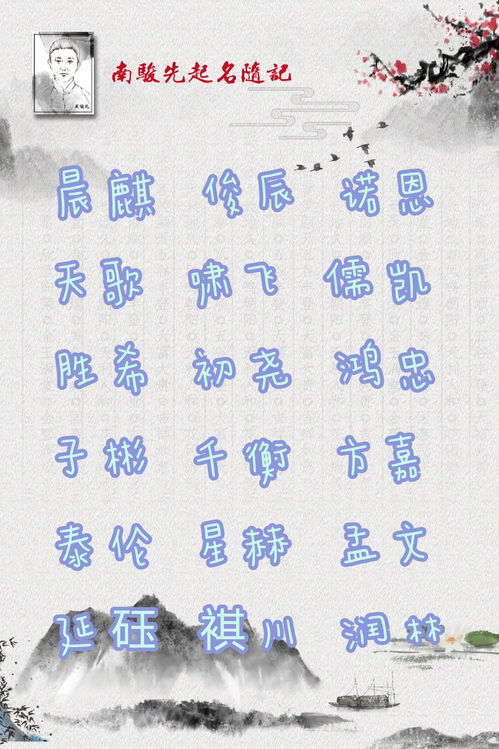 南駿先起名隨記
晨麒 俊辰 诺恩
天歌 啸飞 儒凯
胜希 初尧 鸿忠
子彬 千衡 方嘉
泰伦 星赫 孟文
延砡 祺川 润林